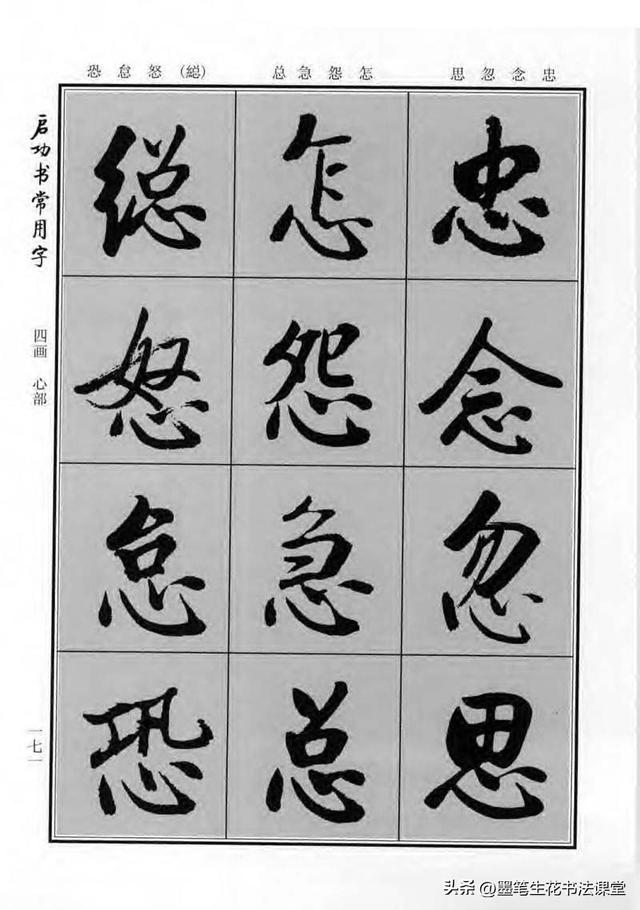 忠念忽思 怎怨急总 (緫)怒怠恐
忠念忽思
怎怨急总
緫怒怠恐
启功书常用字
四画 心部
一七一
头条 @墨笔生花书法课堂